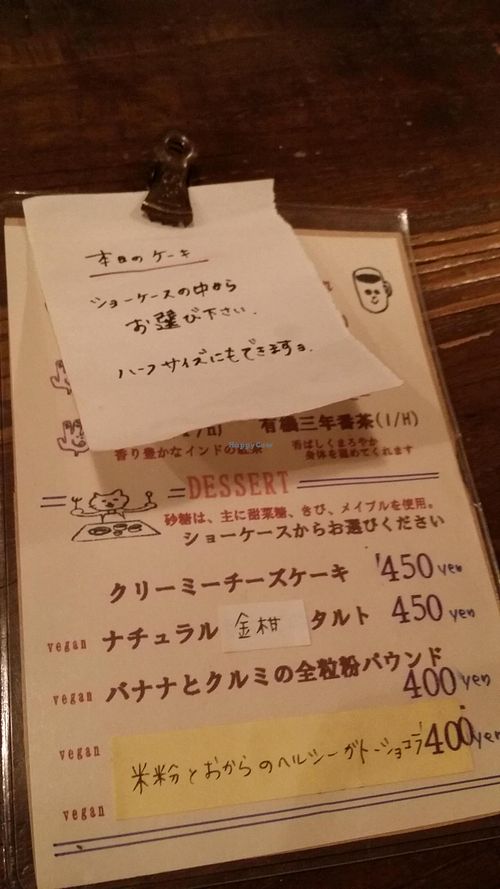 本日のケーキ
ショーケースの中から
お選び下さい.
ハーフサイズにもできますョ.
有機三年番茶(I/H)
香り豊かなインドの紅茶
香ばしくまろやか
身体を温めてくれます
HappyCow
DESSERT
砂糖は、主に甜菜糖、きび、メイプルを使用。
ショーケースからお選びください
クリーミーチーズケーキ 450yen
vegan ナチュラル 金柑 タルト 450 yen
vegan バナナとクルミの全粒粉パウンド
400yen
vegan
米粉とおからのヘルシーガトーショコラ 400yen
vegan